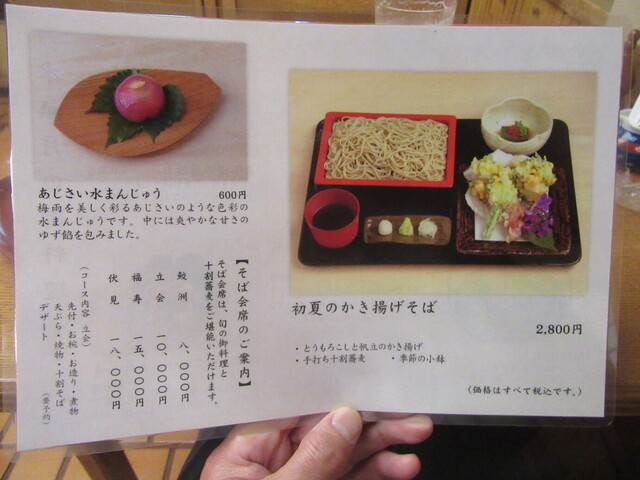 あじさい水まんじゅう 600円
梅雨を美しく彩るあじさいのような色彩の
水まんじゅうです。中には爽やかな甘さの
ゆず餡を包みました。
【そば会席のご案内】
そば会席は、旬の御料理と
十割蕎麦をご堪能いただけます。
鮫洲 八、〇〇〇円
立会 一〇、〇〇〇円
福寿 一五、〇〇〇円
伏見 一八、〇〇〇円
(コース内容 立会)
先付・お椀・お造り・煮物
天ぷら・焼物・十割そば
デザート (要予約)
初夏のかき揚げそば
2,800円
・とうもろこしと帆立のかき揚げ
・手打ち十割蕎麦 ・季節の小鉢
(価格はすべて税込です。)